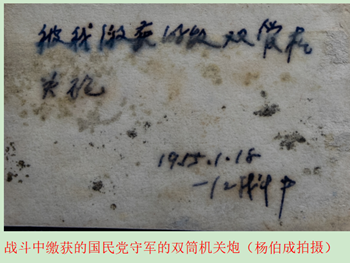 被我缴获的敌双管机
关炮
1955.1.18
一江战斗中
战斗中缴获的国民党守军的双筒机关炮（杨伯成拍摄）